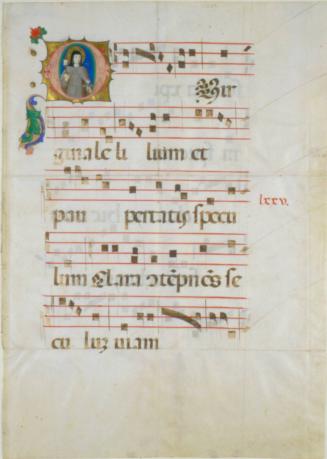 O
Vir
ginale li lium et
lxxv.
pau pertatis specu
lum Clara ↄtēpnēs se
cu luꝫ uiam